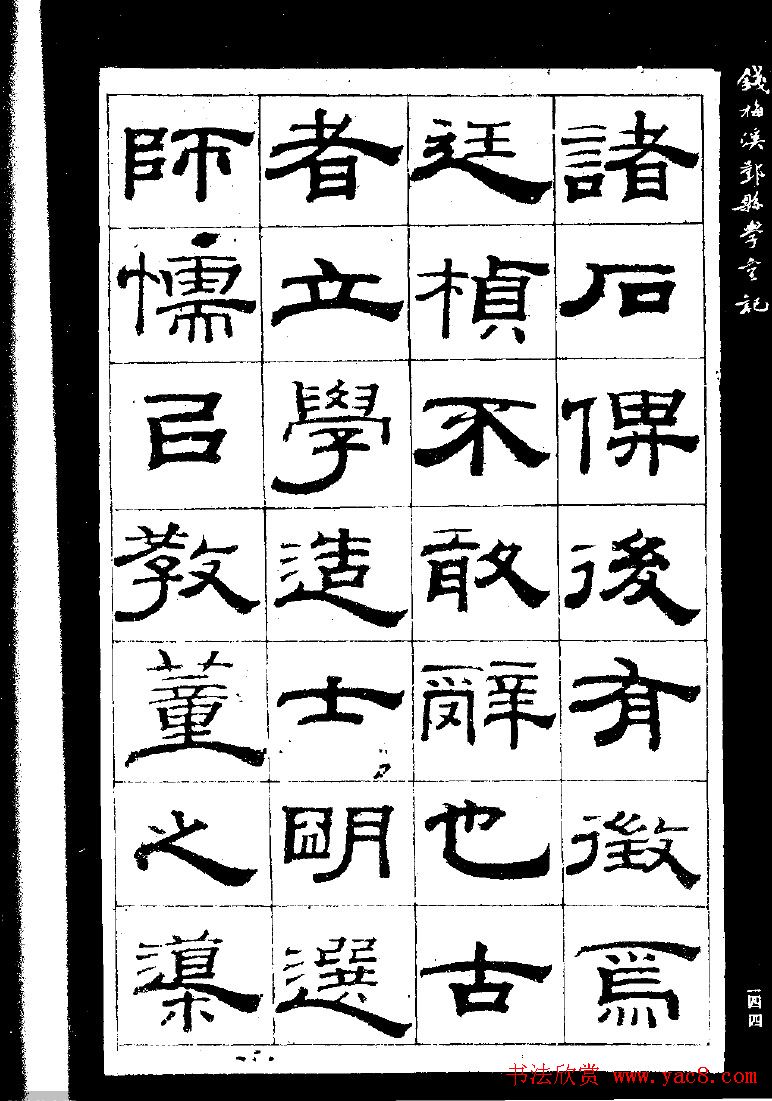 錢梅溪鄞縣學宮記
諸石俾後有徵焉
廷楨不敢辭也古
者立學造士朙選
師懦㠯教董之渠
一四四
书法欣赏 www.yac8.com